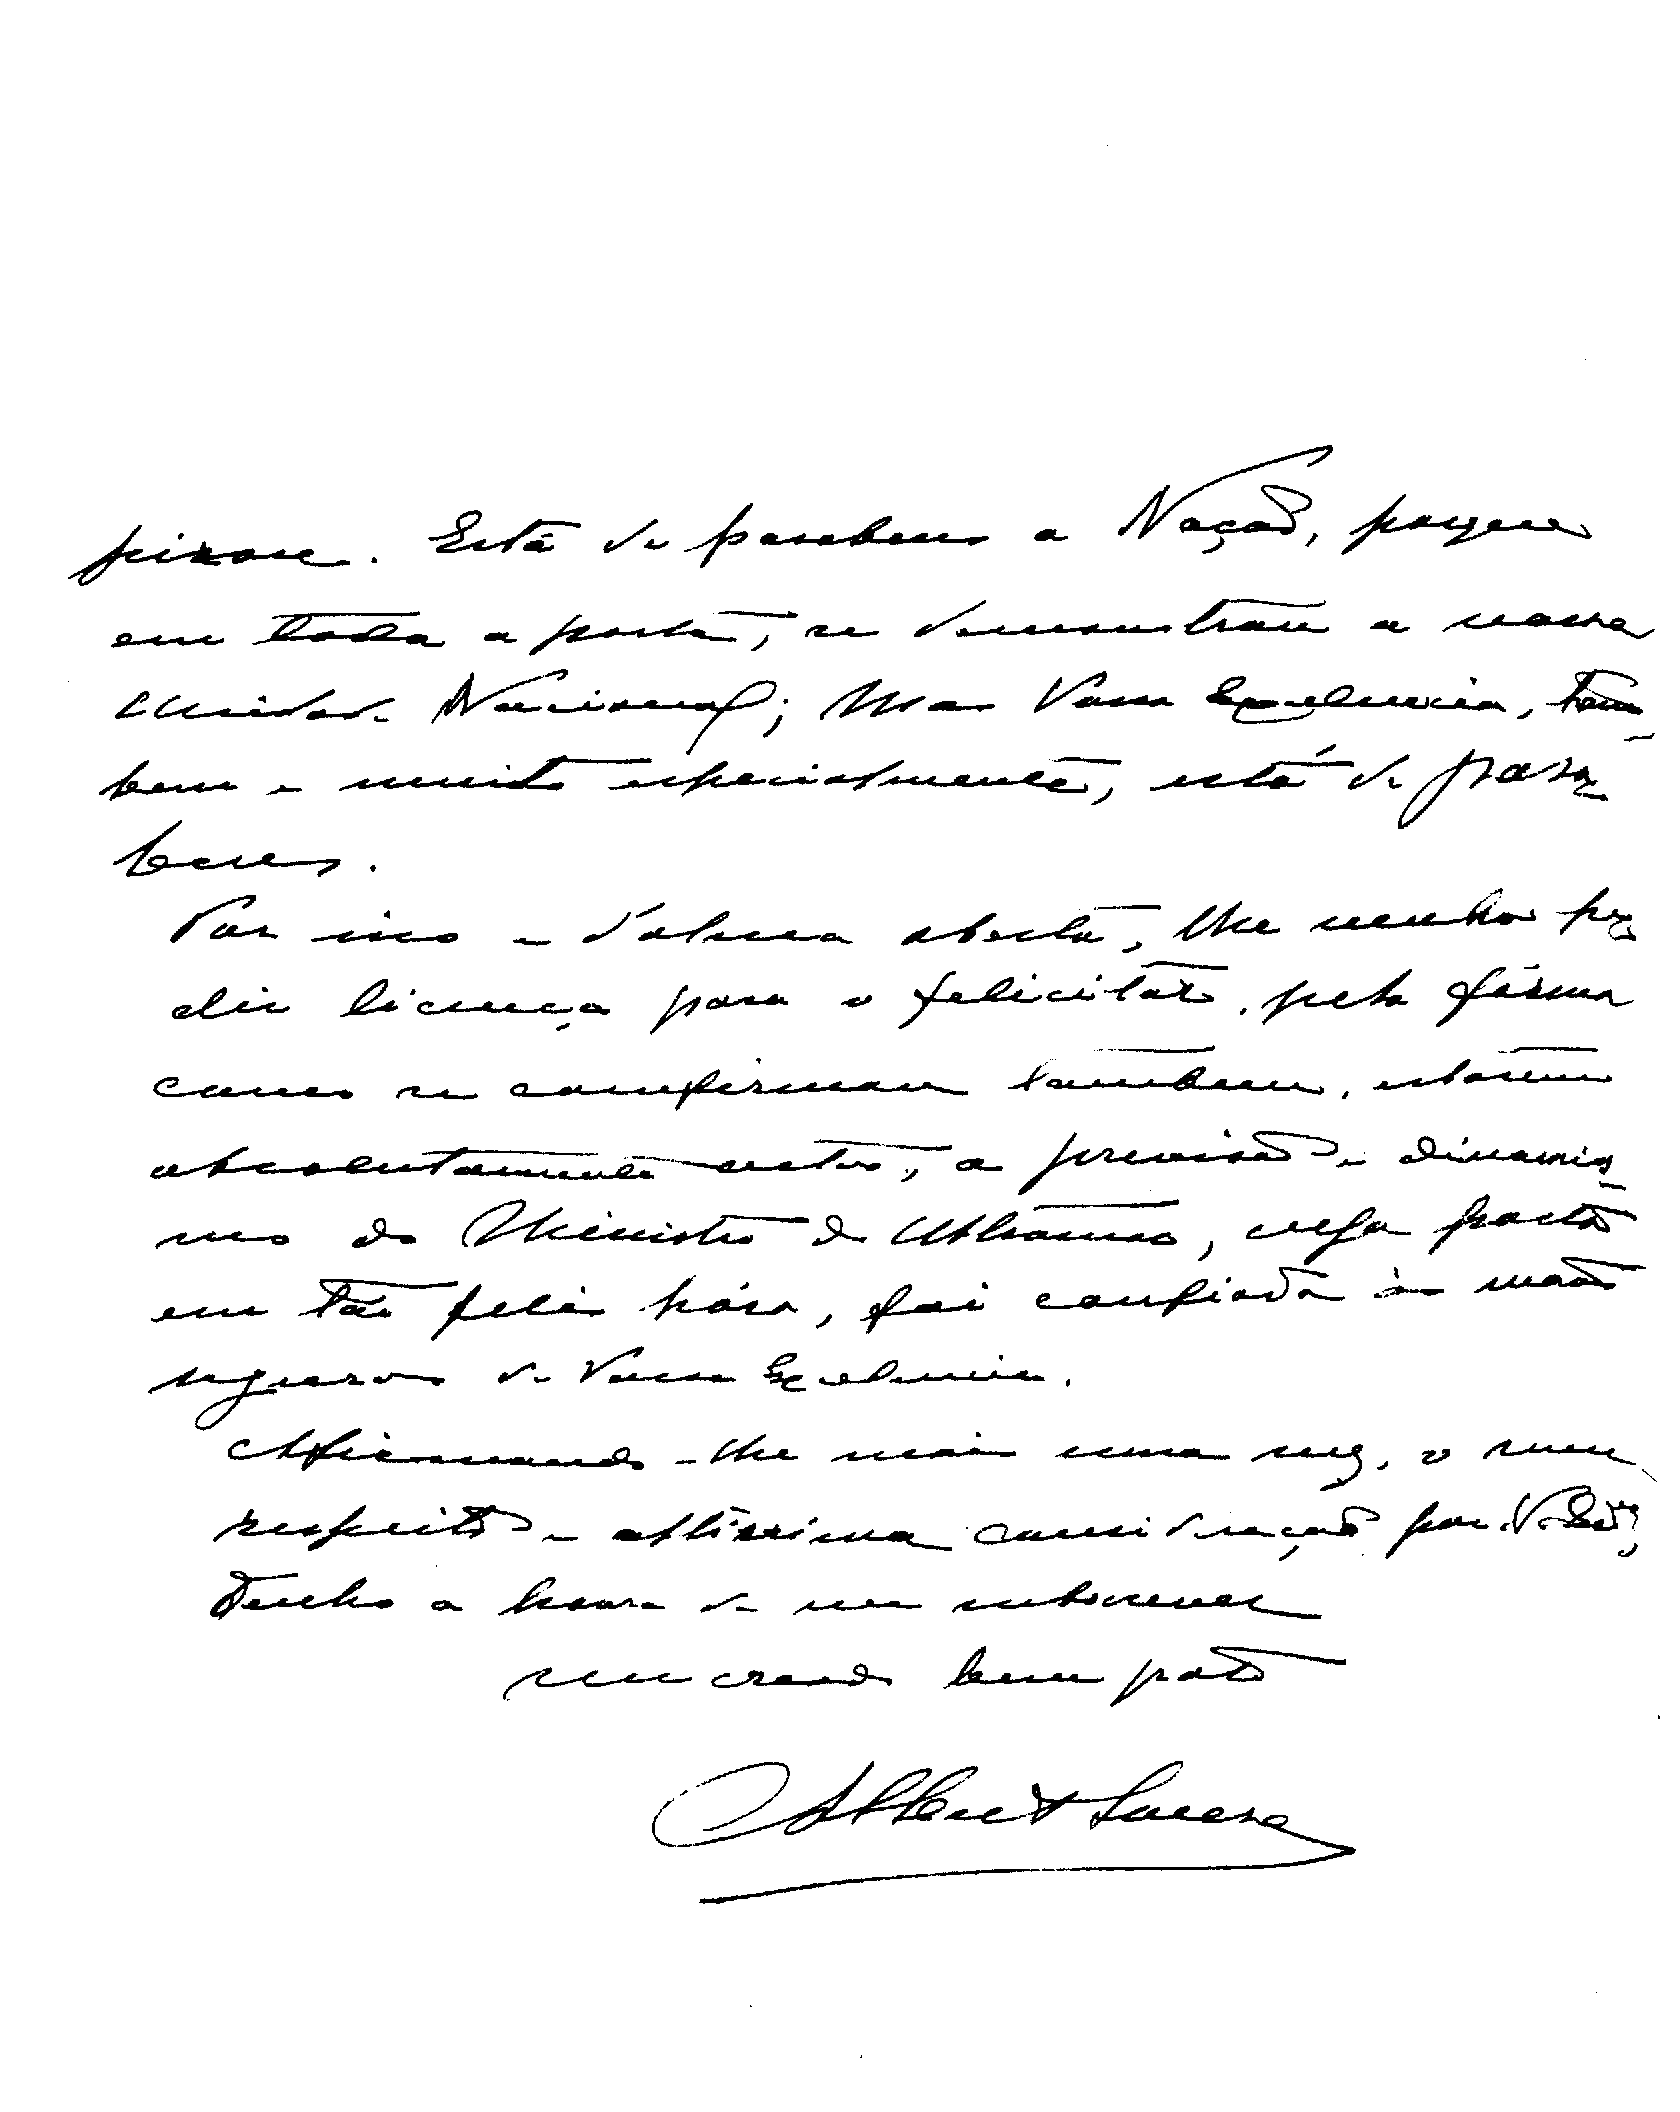 pirou. Está de parabens a Nação, porque
em toda a parte, se demonstrou a nossa
unidade Nacional; Mas Vossa Excelencia, tam-
bem e muito especialmente, está de para-
bens.
Por isso e d'alma aberta, lhe venho pe-
dir licença para o felicitar, pela fórma
como se confirmou tambem, estarem
absolutamente certos, a previsão e dinamis-
mo do Ministro do Ultramar, cuja pasta
em tão feliz hóra, foi confiada ás mãos
seguras de Vossa Excelencia.
Afirmando-lhe mais uma vez, o meu
respeito e altissima consideração por V.
Tenho a honra de me subscrever
seu creado bem grato